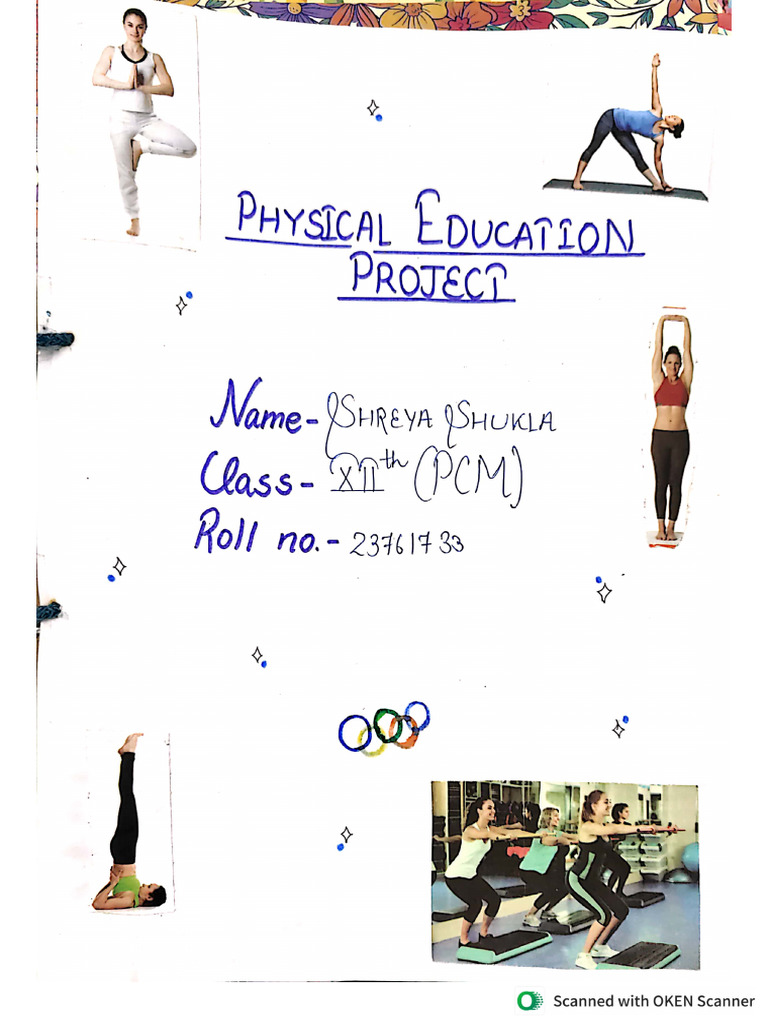 PHYSICAL EDUCATION
PROJECT
Name- SHREYA SHUKLA
Class- XIIth (PCM)
Roll no.- 23761733
Scanned with OKEN Scanner